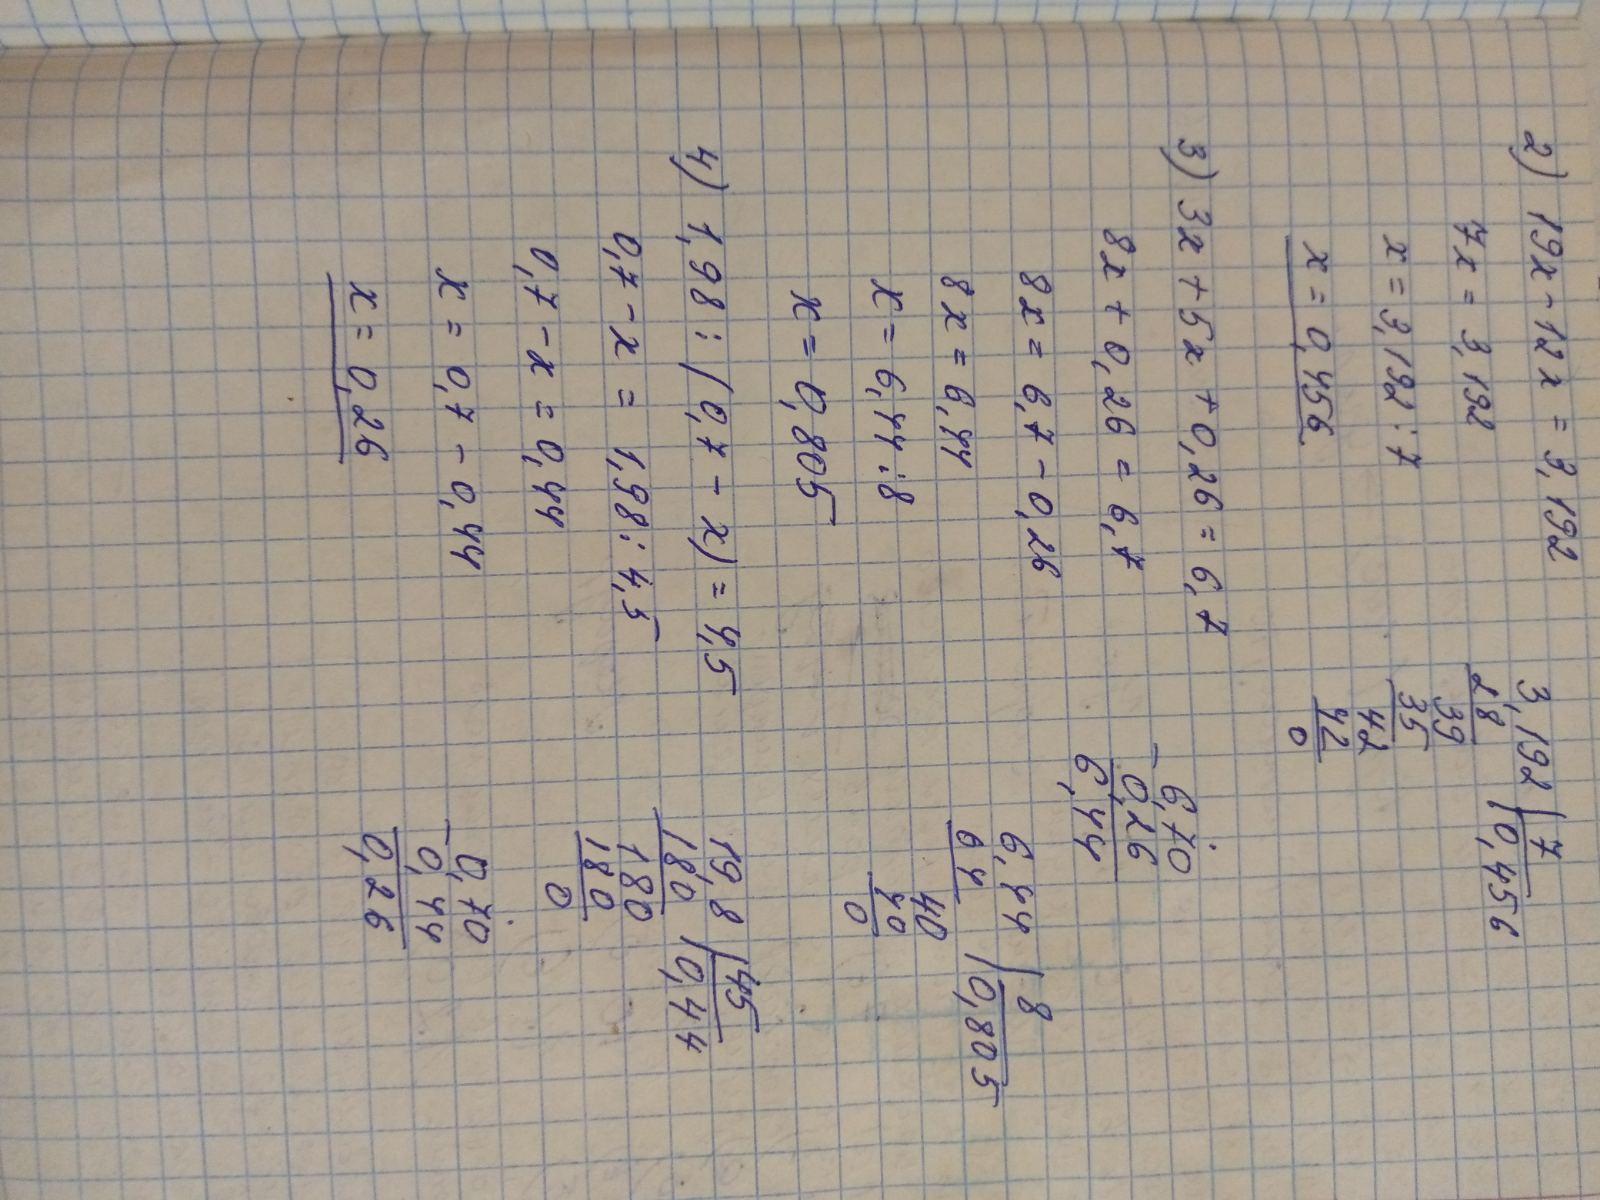 2) 19x - 12x = 3,192
7x = 3,192
x = 3,192 : 7
x = 0,456
3,192 | 7
28 | 0,456
39
35
42
42
0
3) 3x + 5x + 0,26 = 6,7
8x + 0,26 = 6,7
8x = 6,7 - 0,26
8x = 6,44
x = 6,44 : 8
x = 0,805
- 6,70
0,26
6,44
6,44 | 8
64 | 0,805
40
40
0
4) 1,98 : (0,7 - x) = 4,5
0,7 - x = 1,98 : 4,5
0,7 - x = 0,44
x = 0,7 - 0,44
x = 0,26
19,8 | 45
18,0 | 0,44
180
180
0
- 0,70
0,44
0,26